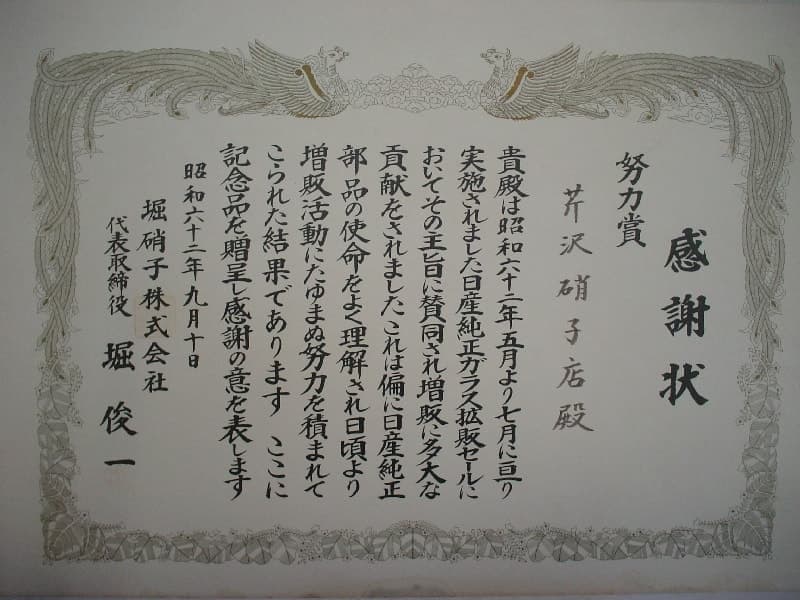 感謝状
努力賞
芹沢硝子店殿
貴殿は昭和六十二年五月より七月に亘り
実施されました日産純正ガラス拡販セールに
おいてその主旨に賛同され増販に多大な
貢献をされましたこれは偏に日産純正
部品の使命をよく理解され日頃より
増販活動にたゆまぬ努力を積まれて
こられた結果であります ここに
記念品を贈呈し感謝の意を表します
昭和六十二年九月十日
堀硝子株式会社
代表取締役 堀俊一